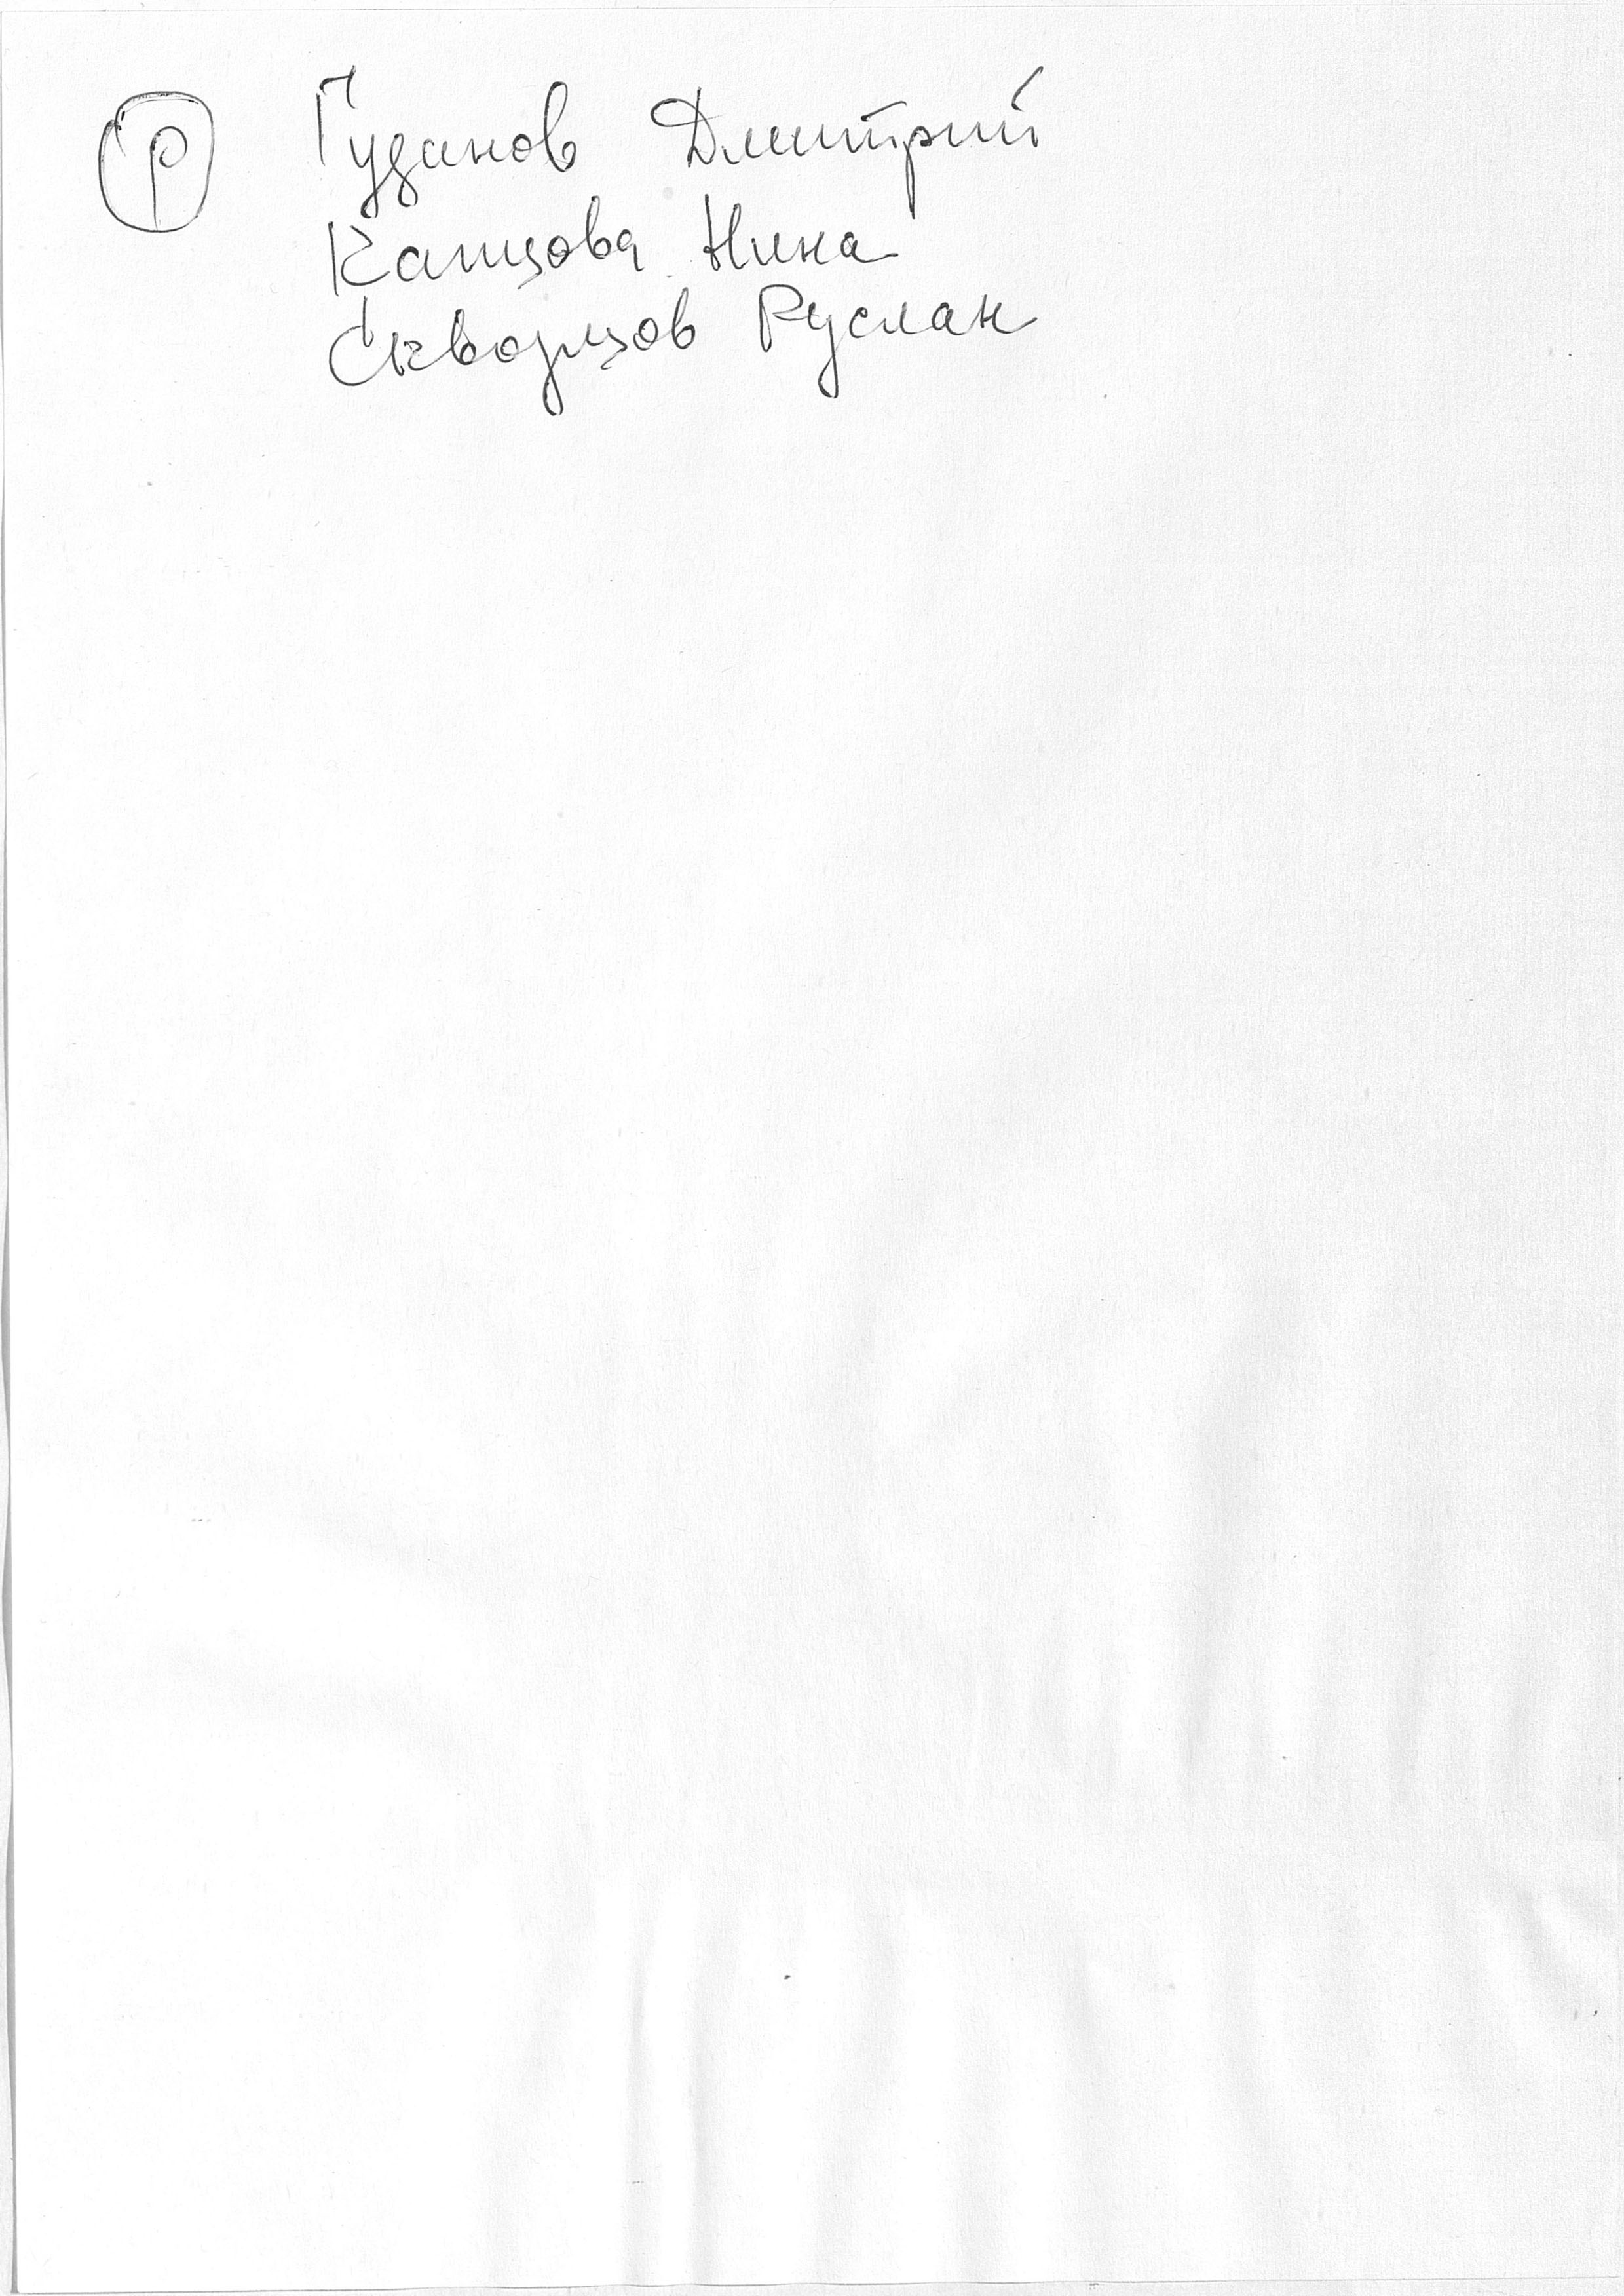 Р Гуданов Дмитрий
Капцова Нина
Скворцов Руслан